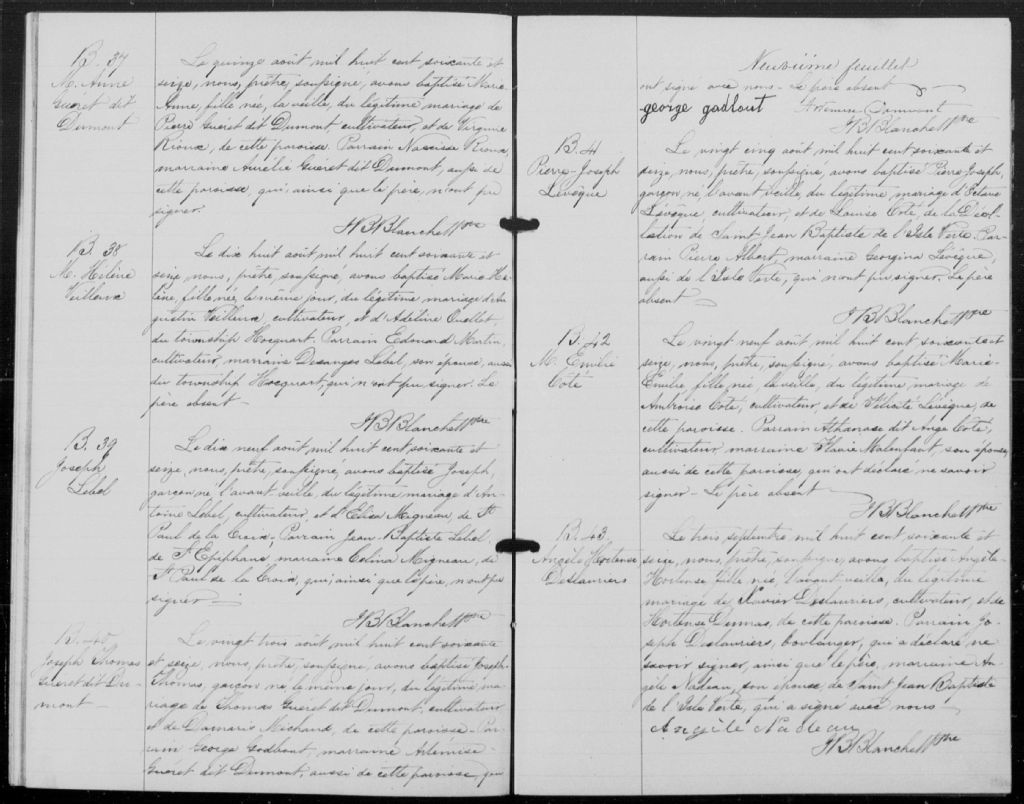 B. 37
M. Anne
Guéret dit
Dumont
Le quinze août mil huit cent soixante et
seize, nous, prêtre, soussigné, avons baptisé Marie
Anne, fille née, la veille, du légitime mariage de
Pierre Guéret dit Dumont, cultivateur, et de Virginie
Rioux, de cette paroisse. Parrain Narcisse Rioux,
marraine Aurélie Guéret dit Dumont, aussi de
cette paroisse, qui, ainsi que le père, n'ont pu
signer.
J.B. Blanchet Ptre
B. 38
M. Hélène
Veilleux
Le dix huit août mil huit cent soixante et
seize, nous, prêtre, soussigné, avons baptisé Marie Hé-
lène, fille née, le même jour, du légitime mariage d'Au
gustin Veilleux, cultivateur, et d'Adeline Ouellet,
du township Hocquart. Parrain Edouard Martin,
cultivateur, marraine Desanges Lebel, son épouse, aussi
du township Hocquart, qui n'ont pu signer. Le
père absent —
J.B. Blanchet Ptre
B. 39
Joseph
Lebel
Le dix neuf août mil huit cent soixante et
seize, nous, prêtre, soussigné, avons baptisé Joseph,
garçon né l'avant-veille, du légitime mariage d'An-
toine Lebel, cultivateur, et d'Elisa Migneau, de St
Paul de la Croix. Parrain Jean-Baptiste Lebel,
de St Epiphane marraine Célina Migneau, de
St Paul de la Croix, qui, ainsi que le père, n'ont pu
signer —
J.B. Blanchet Ptre
B. 40
Joseph Thomas
Guéret dit Du-
mont —
Le vingt trois août mil huit cent soixante
et seize, nous, prêtre, soussigné, avons baptisé Joseph-
Thomas, garçon né le même jour, du légitime ma-
riage de Thomas Guéret dit Dumont, cultivateur
et de Damaris Michaud, de cette paroisse. Par-
rain George Godbout, marraine Artémise
Guéret dit Dumont, aussi de cette paroisse, qui
Neuvième feuillet
ont signé avec nous. Le père absent
george gadbout
J.B. Blanchet Ptre
B. 41
Pierre-Joseph
Lévêque
Le vingt cinq août mil huit cent soixante et
seize, nous, prêtre, soussigné, avons baptisé Pierre Joseph,
garçon, né l'avant veille, du légitime mariage d'Octave
Lévêque, cultivateur, et de Louise Coté, de la Décol-
lation de Saint-Jean Baptiste de l'Isle Verte. Par-
rain Pierre Albert, marraine Georgina Lévêque,
aussi de l'Isle Verte, qui n'ont pu signer. Le père
absent
J.B. Blanchet Ptre
B. 42
M. Emilie
Coté
Le vingt neuf août, mil huit cent soixante et
seize, nous, prêtre, soussigné, avons baptisé Marie-
Emilie, fille née la veille, du légitime mariage de
Ambroise Coté, cultivateur, et de Félicité Lévêque, de
cette paroisse. Parrain Athanase dit Ange Coté,
cultivateur, marraine Flavie Malenfant, son épouse,
aussi de cette paroisse, qui ont déclaré ne savoir
signer — Le père absent
J.B. Blanchet Ptre
B. 43
Angèle Hortense
Deslauriers
Le trois septembre mil huit cent soixante et
seize, nous, prêtre, soussigné, avons baptisé Angèle-
Hortense, fille née, l'avant-veille, du légitime
mariage de Xavier Deslauriers, cultivateur, et de
Hortense Dumas, de cette paroisse. Parrain Jo-
seph Deslauriers, boulanger, qui a déclaré ne
savoir signer, ainsi que le père, marraine An-
gèle Nadeau, son épouse, de Saint Jean Baptiste
de l'Isle Verte, qui a signé avec nous
Angèle Nadeau
J.B. Blanchet Ptre